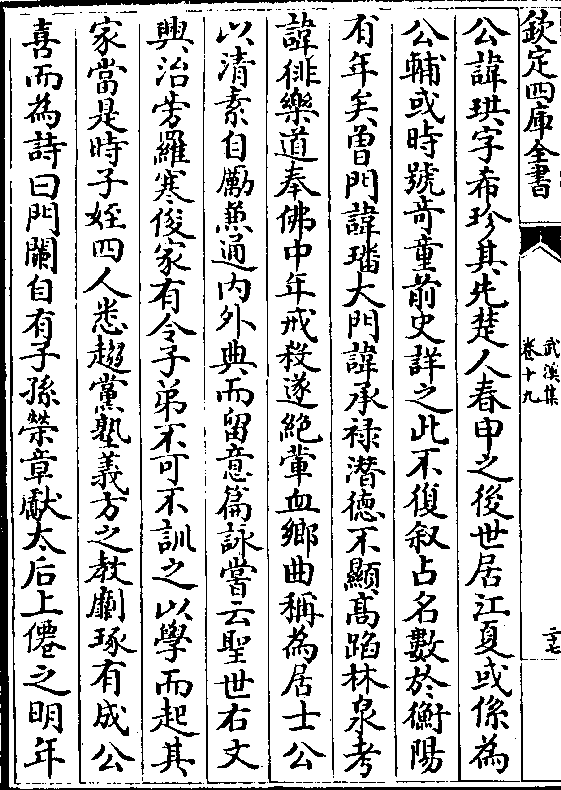 欽定四庫全書
武溪集
卷十九
二十七
公諱珙字希珍其先楚人春申之後世居江夏或係為
公輔或時號竒童前史詳之此不復叙占名數於衡陽
有年矣曽門諱璠大門諱承禄潛德不顯髙蹈林泉考
諱徘樂道奉佛中年戒殺遂絶葷血鄉曲稱為居士公
以清素自勵兼通内外典而留意篇詠嘗云聖世右文
興治旁羅寒俊家有令子弟不可不訓之以學而起其
家當是時子姪四人悉趨黨塾義方之教劘琢有成公
喜而為詩曰門闌自有子孫榮章獻太后上僊之明年